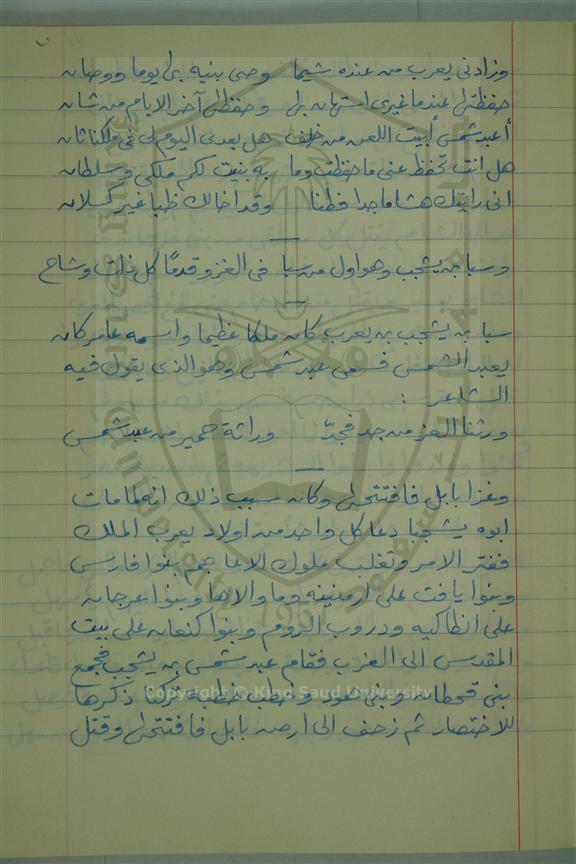 وزادني يعرب من عنده شيما   وصى بنيه بها يوما ووصان
حفظتها عندما غيرى استهان بها   وحفظها آخر الايام من شان
أعبد شمس أبيت اللعن من خلف   هل بعدى اليوم لى في ملكنا ثان
هل انت تحفظ عنى ما حفظت وما   به بنيت لكم ملكي وسلطان
انى رايتك هشاما جدا فطنا   وقد اخالك ظبا غير كسلان
وسبا بن يشجب وهو اول من سبا   فى الغزو قدمًا كل ذات وشاح
سبا بن يشجب بن يعرب كان ملكا عظيما واسمه عامر كان
يعبد الشمس فسمى عبد شمس وهو الذى يقول فيه
الشاعر :
ورثنا العز من جد فجدّ   وراثة حمير من عبد شمس
وغزا بابل فافتتحها وكان سبب ذلك انه لما مات
ابوه يشجب دعا كل واحد من اولاد يعرب الملك
ففتر الامر وتغلب ملوك الاعاجم بنوا فارس
وبنوا يافت على ارمينيه وما والاها وبنوا عرجان
على انطاكيه ودروب الروم وبنوا كنعان على بيت
المقدس الى الغرب فقام عبد شمس بن يشجب فجمع
بنى قحطان وبنى هود وخطب خطبة تركنا ذكرها
للاختصار ثم زحف الى ارض بابل فافتتحها وقتل
Copyright © King Saud University